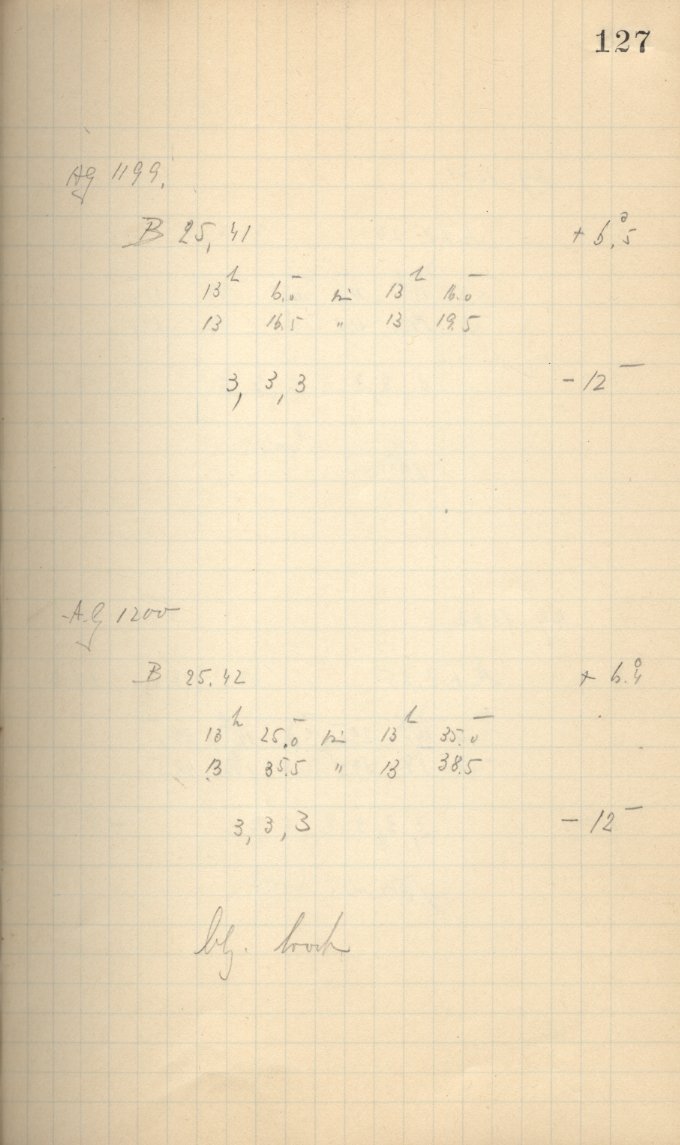 127
AG 1199.
B 25,41 + 6°,5
13h 6.0 – bis 13h 16.0 –
13 16.5 " 13 19.5
3, 3, 3 – 12 –
A.G 1200
B 25.42 + 6.°4
13h 25.0 – bis 13h 35.0 –
13 35.5 " 13 38.5
3, 3, 3 – 12 –